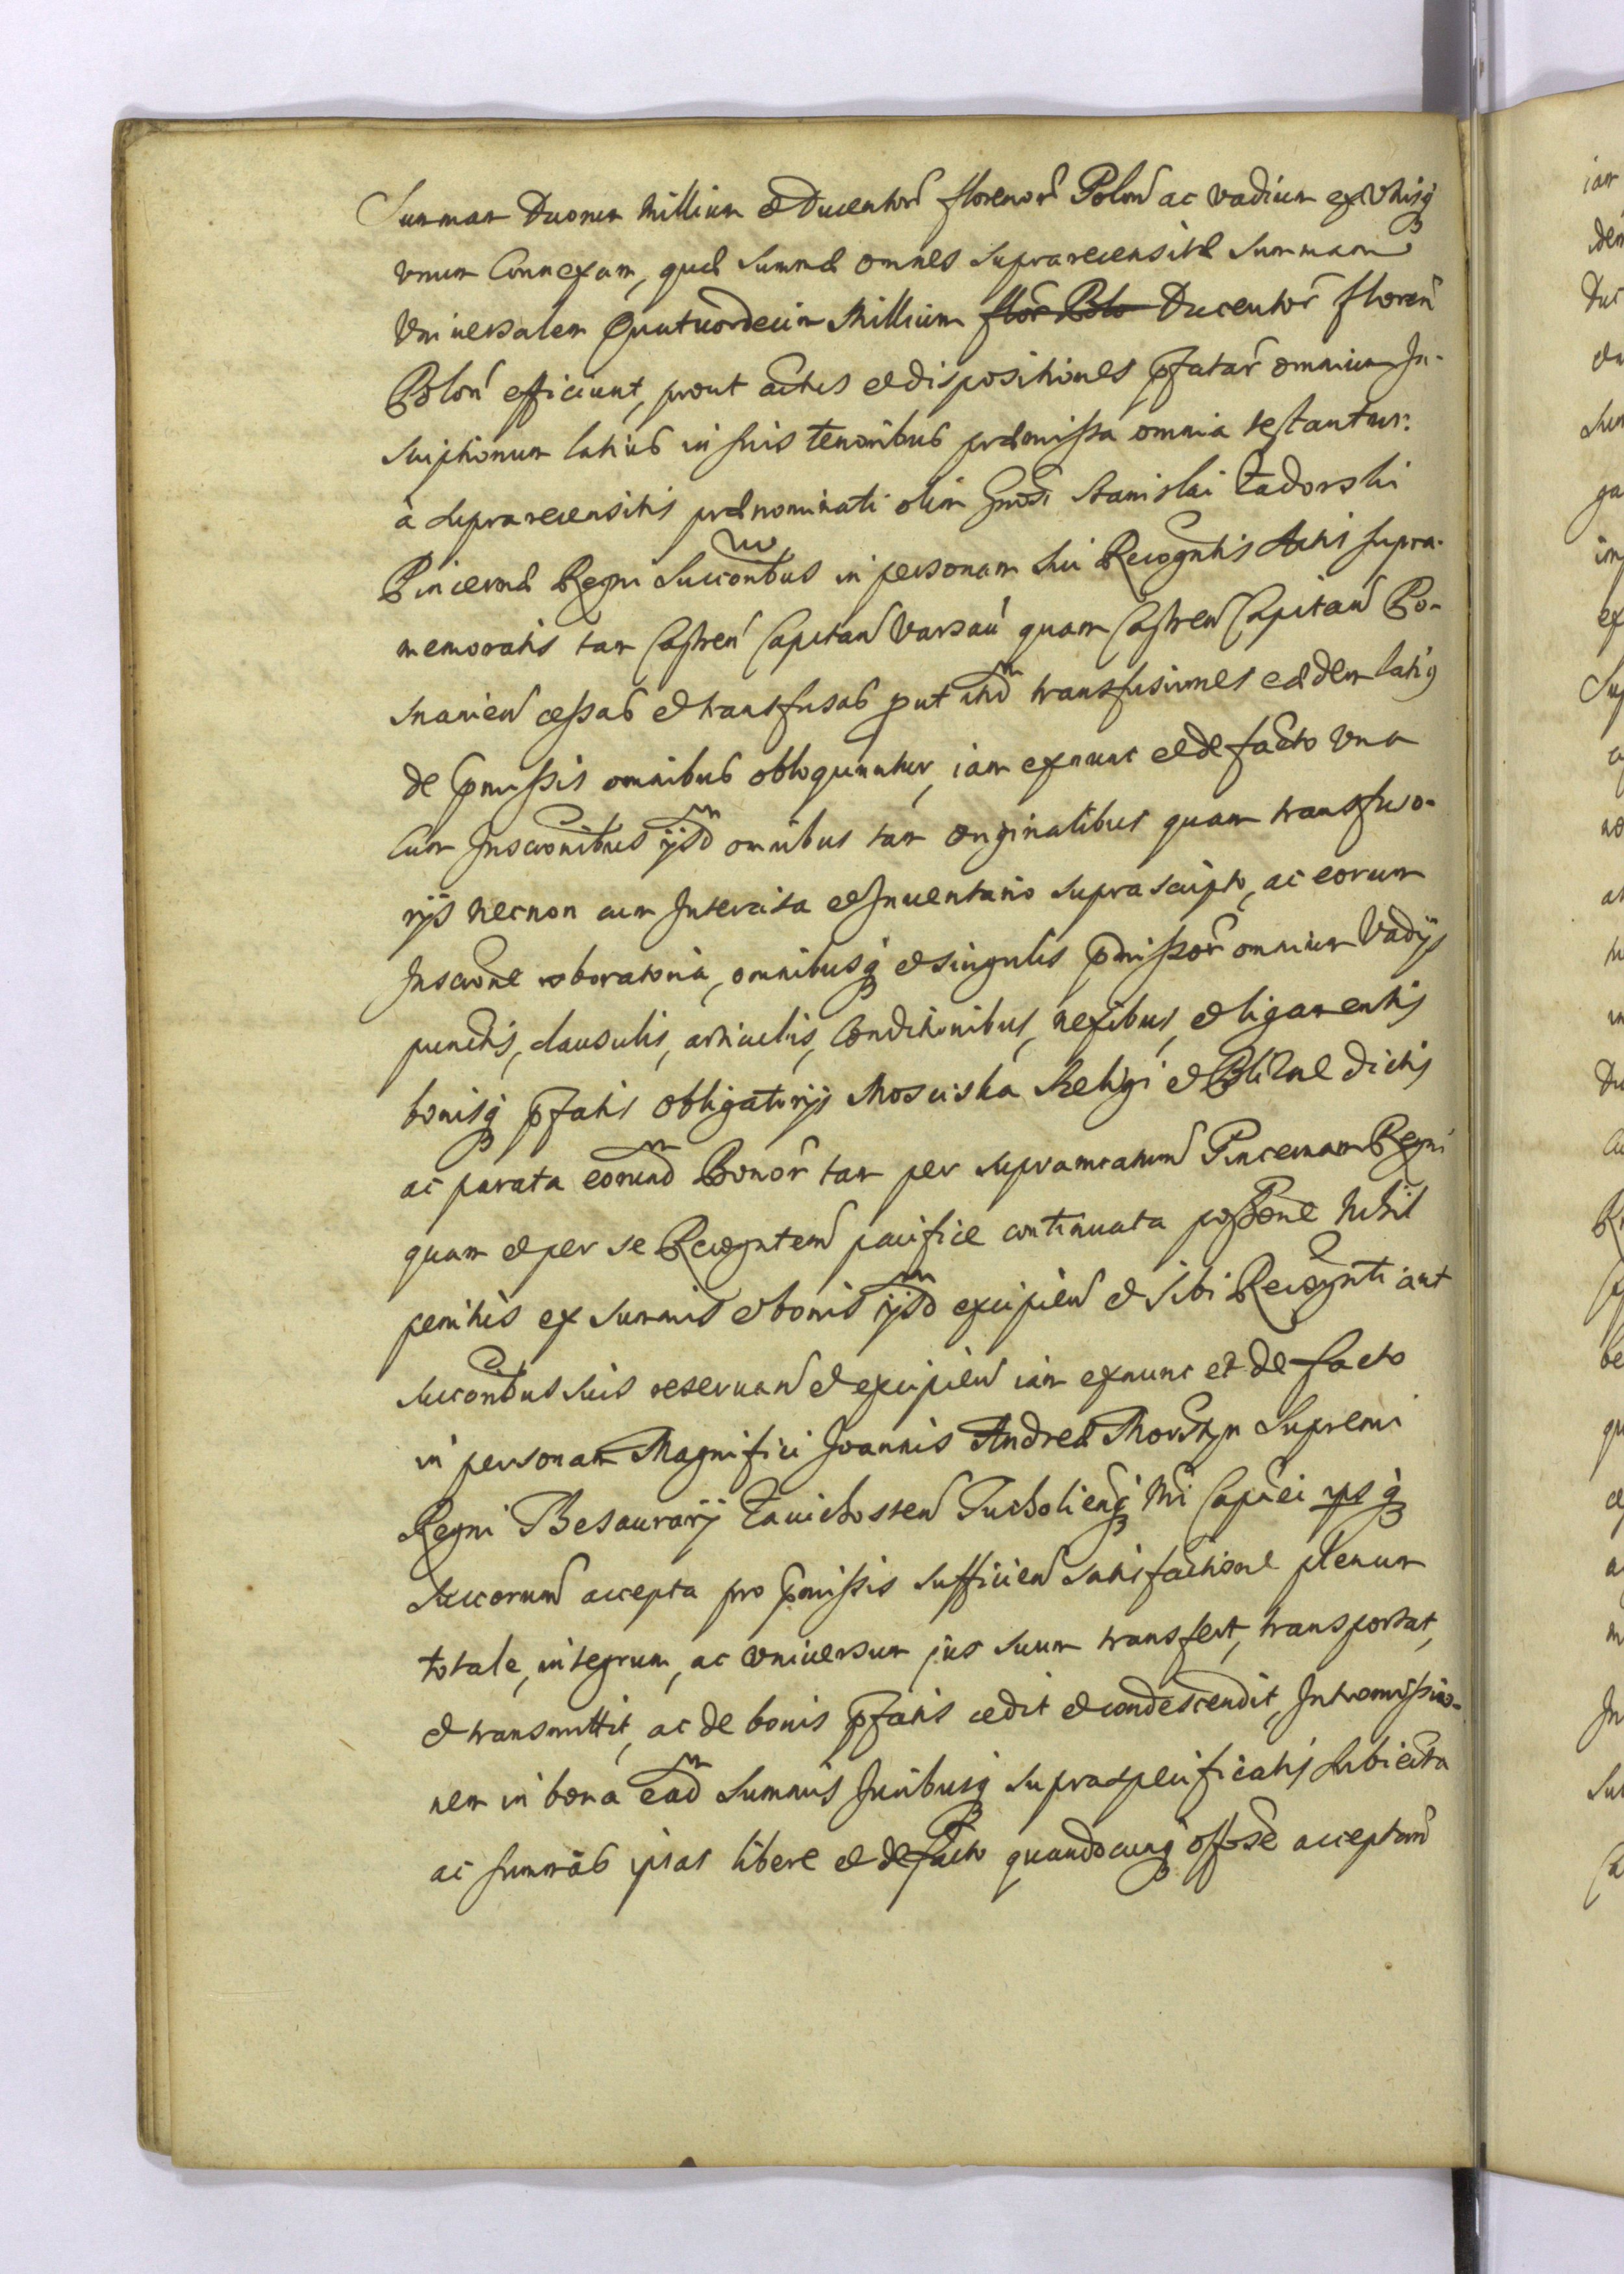 Summam Duorum Millium et Ducentor̃ florenor̃ Polon̄ ac vadium ex Vtrisq̃
vnum Connexam, quæ Summæ omnes suprarecensitæ Summam
Vniuersalem Quatuordecim Millium flor̃ Polo Ducentor̃ floren̄
Polon̄ efficiunt, prout actus et dispositiones p̃fatar̃ omnium In-
scriptionum latius in suis tenoribus præmissa omnia testantur:
à suprarecensitis prænominati olim Gn̄di Stanislai Zadorski
Pincernæ Regni Succor̃ibus in personam sui Recogn̄tis Actis supra-
memoratis tam Castren̄ Capitan̄ Varsau̇ quam Castren̄ Capitan̄ Po-
snanien̄ cessas et transfusas p̃ut ibid̃ transfusiones eædem latiq̃
de p̃missis omnibus obloquuntur, iam exnunc et de facto vna
Cum Inscr̃onibus ijsd̃ omnibus tam originalibus quam transfuso-
rijs necnon cum Intercisa et Inuentario suprascripto, ac eorum
Inscr̃one roboratoria, omnibusq̃ et singulis p̃missor̃ omnium Vadijs
punctis, clausulis, articulis, Conditionibus, nexibus, et ligamentis
bonisq̃ p̃fatis obligatorijs Mosciska Seligi et dictis
ac parata eorund̃ Bonor̃ tam per supramr̃atum Pincernam Regni
quam et per se Recogn̄tem pacifice continuata poss̃one Nihil
penitus ex summis et bonis ijsd̃ excipien̄ et sibi Recogn̄ti aut
succor̃ibus suis reseruan̄ et excipien̄ iam exnunc et de facto
in personam Magnifici Joannis Andreæ Morstyn Supremi
Regni Thesaurarij Zauichosten̄ Tucholien̄q̃ Capnei ipsq̃
Succorum̄ accepta pro p̃missis sufficien̄ satisfactione plenum
totale, integrum, ac vniuersum jus suum transfert, transportat,
et transmittit, ac de bonis p̃fatis cedit et condescendit, Intromissio-
nem in bona ead̃ Summis Juribusq̃ supraspecificatis subiecta
ac summas ipsas libere et de facto quandocunq̃ acceptan̄